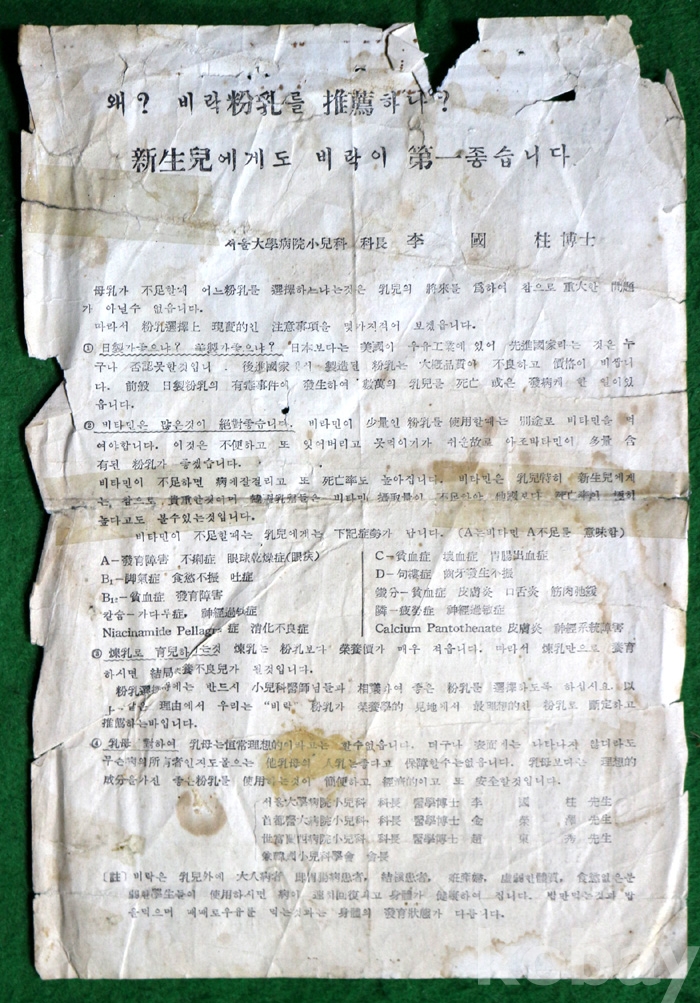 왜? 비락粉乳를 推薦하나?
新生兒에게도 비락이 第一좋습니다
서울大學病院小兒科 科長 李 國 柱 博士
母乳가 不足할때 어느粉乳를 選擇하느냐는것은 乳兒의 將來를 爲하여 참으로 重大한 問題
가 아닐수 없읍니다.
따라서 粉乳選擇上 現實的인 注意事項을 몇가지적어 보겠읍니다.
① 日製가좋으냐? 美製가좋으냐? 日本보다는 美國이 우유工業에 있어 先進國家라는 것은 누
구나 否認못할것입니 . 後進國家 製造된 粉乳는 大槪品質이 不良하고 價格이 비쌉니
다. 前般 日製粉乳의 有毒事件이 發生하여 數萬의 乳兒를 死亡 或은 發病케 한 일이있
읍니다.
② 비타민은 많은것이 絕對좋습니다. 비타민이 少量인 粉乳를 使用할때는 別途로 비타민을 먹
여야합니다. 이것은 不便하고 또 잊어버리고 못먹이기가 쉬운故로 아조비타민이 多量 含
有된 粉乳가 좋겠습니다.
비타민이 不足하면 病에잘걸리고 또 死亡率도 높아집니다. 비타민은 乳兒特히 新生兒에게
는 참으로 貴重한것이며 韓國乳兒들은 비타민 攝取量이 不足하야 他國보다 死亡率이
높다고도 볼수있는것입니다.
비타민이 不足할때는 乳兒에게는 下記症勢가 납니다. (A는비타민 A不足을 意味함)
A—發育障害 不痢症 眼球乾燥症(眼疾)
B₁—脚氣症 食慾不振 吐症
B₁₂—貧血症 發育障害
칼슘—가다두症, 神經過敏症
Niacinamide Pellagra 症 消化不良症
C—貧血症 壞血症 胃腸出血症
D—佝僂症 齒牙發生不振
鐵分—貧血症 皮膚炎 口舌炎 筋肉弛緩
燐—疲勞症 神經過敏症
Calcium Pantothenate 皮膚炎 神經系統障害
③ 煉乳로 育兒하는것 煉乳는 粉乳보다 榮養價가 매우 적읍니다. 따라서 煉乳만으로 養育
하시면 結局 養不良兒가 될것입니다.
粉乳選 때에는 반드시 小兒科醫師님들과 相議하여 좋은 粉乳를 選擇하도록 하십시요. 以
上 같은 理由에서 우리는 "비락" 粉乳가 榮養學的 見地에서 最理想的인 粉乳로 斷定하고
推薦하는바입니다.
④ 乳母 對하여 乳母는恒常理想的이라고는 할수없읍니다. 더구나 表面에는 나타나지 안더라도
무슨病 所有者인지도몰으는 他乳母의 人乳는좋다고 保障할수는없읍니다. 乳母보다는 理想的
成分을가진 좋은粉乳를 使用하는것이 簡便하고 經濟的이고 또 安全할것입니다.
서울大學病院小兒科 科長 醫學博士 李 國 柱 先生
首都醫大病院小兒科 科長 醫學博士 金 先生
世富蘭偲病院小兒科 科長 醫學博士 趙 東 秀 先生
兼韓國小兒科學會 會長
〔註〕 비락은 乳兒外에 大人病者 即胃腸病患者, 結核患者, 姙産婦, 虛弱한體質, 食慾없은분
學生들이 使用하시면 病이 速히回復되고 身體가 健康하여 집니다. 밥만먹는것과 밥
을먹으며 때때로우유를 먹는것과는 身體의 發育狀態가 다릅니다.
kobay